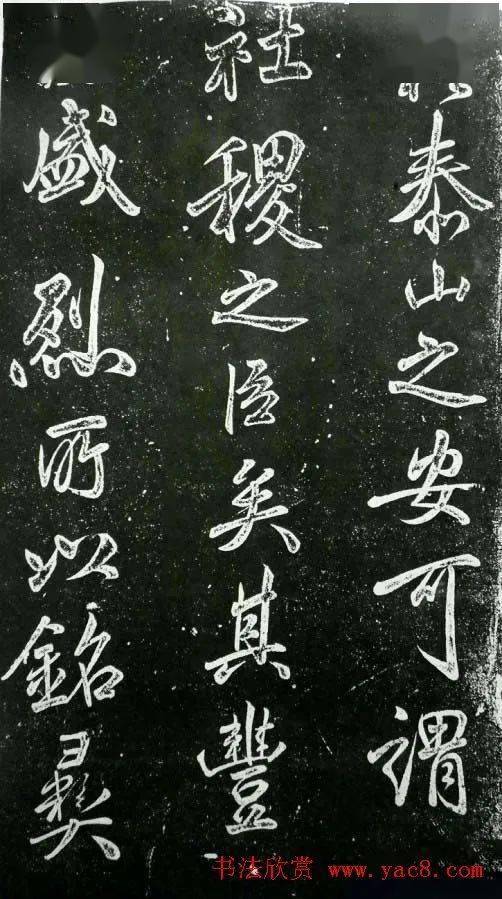 泰山之安可謂
社稷之臣矣其豐
盛烈所以銘彝
书法欣赏 www.yac8.com